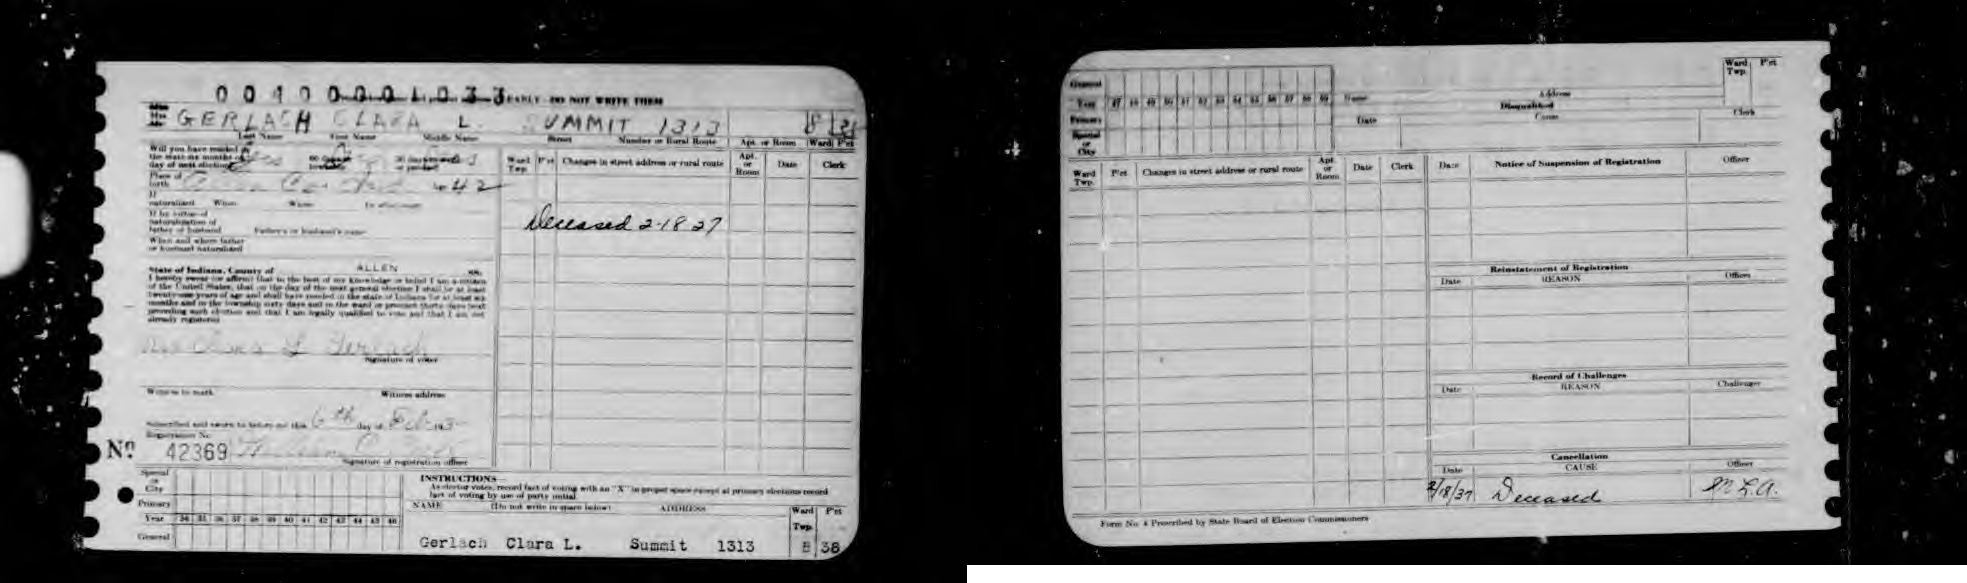 CLEARLY DO NOT WRITE THERE
GERLACH CLARA L. SUMMIT 1313 8
Last Name First Name Middle Name Street Number or Rural Route Apt. or Room Ward P'ct
Will you have resided in
the state six months
day of next election
Place of
birth 42
If
naturalized When Where
If by virtue of
naturalization of
father or husband Father's or husband's name
When and where father
or husband naturalized
Ward Twp. P'ct Changes in street address or rural route Apt. or Room Date Clerk
Deceased 2-18 37
State of Indiana, County of ALLEN ss.
I hereby swear (or affirm) that to the best of my knowledge or belief I am a citizen
of the United States, that on the day of the next general election I shall be at least
twenty-one years of age and shall have resided in the state of Indiana for at least six
months and in the township sixty days and in the ward or precinct thirty days next
preceding such election and that I am legally qualified to vote and that I am not
already registered
Clara L Gerlach
Signature of voter
Witness to mark Witness address
Subscribed and sworn to before me this 6th day of Feb 193
Registration No.
No. 42369
Signature of registration officer
Special
or
City
Primary
Year 34 35 36 37 38 39 40 41 42 43 44 45 46
General
INSTRUCTIONS—
As elector votes, record fact of voting with an "X" in proper space except at primary elections record
fact of voting by use of party initial
NAME (Do not write in space below) ADDRESS Ward Twp. P'ct
Gerlach Clara L. Summit 1313 8 38
General
Year 47 48 49 50 51 52 53 54 55 56 57 58 59
Primary
Special
or
City
Name Address Ward Twp. P'ct
Disqualified
Date Cause Clerk
Ward Twp. P'ct Changes in street address or rural route Apt. or Room Date Clerk
Date Notice of Suspension of Registration Officer
Reinstatement of Registration
Date REASON Officer
Record of Challenges
Date REASON Challenger
Cancellation
Date CAUSE Officer
2/18/37 Deceased M.L.A.
Form No. 4 Prescribed by State Board of Election Commissioners